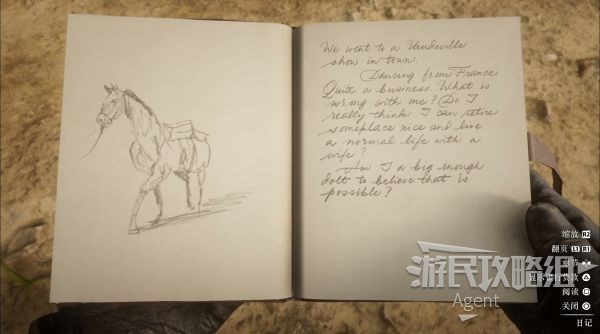 We went to a Vaudeville
show in town.
Dancing from France
Quite a business. What is
wrong with me? Do I
really think I can retire
someplace nice and live
a normal life with a
wife?
Am I a big enough
dolt to believe that is
possible?
缩放 R2
翻页 L1 R1
阅读
关闭
日记
游民攻略组
Agent